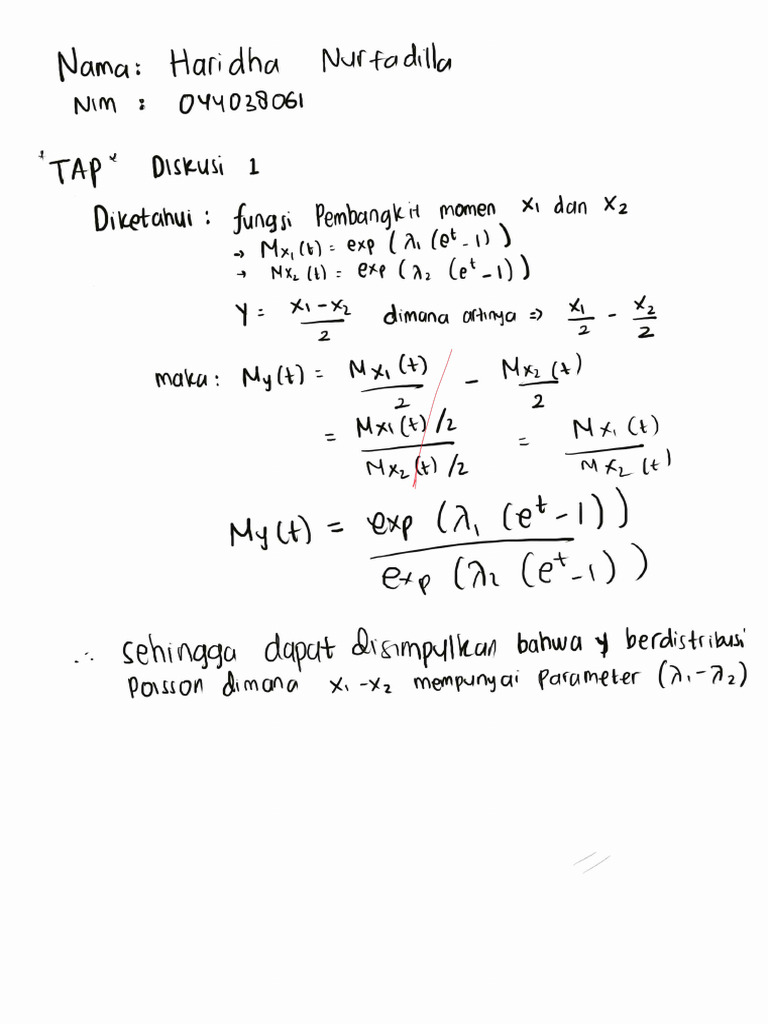 Nama: Haridha Nurfadilla
NIM : 044038061
*TAP* Diskusi 1
Diketahui: fungsi Pembangkit momen x₁ dan x₂
→ Mx₁(t) = exp (λ₁ (eᵗ - 1))
→ Mx₂ (t) = exp (λ₂ (eᵗ - 1))
Y = (x₁ - x₂)/2 dimana artinya => x₁/2 - x₂/2
maka: My(t) = Mx₁(t)/2 - Mx₂(t)/2
= (Mx₁(t)/2)/(Mx₂(t)/2) = Mx₁(t)/Mx₂(t)
My(t) = exp (λ₁ (eᵗ - 1))/exp (λ₂ (eᵗ - 1))
∴ sehingga dapat disimpulkan bahwa y berdistribusi
Poisson dimana x₁ - x₂ mempunyai parameter (λ₁ - λ₂)